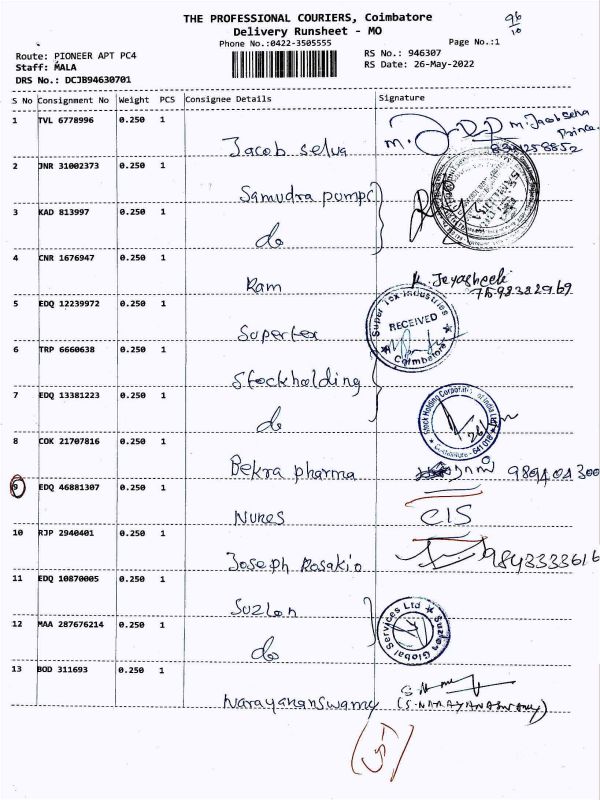 THE PROFESSIONAL COURIERS, Coimbatore
96
10
Delivery Runsheet - MO
Phone No.:0422-3505555
Page No.:1
Route: PIONEER APT PC4
RS No.: 946307
Staff: MALA
RS Date: 26-May-2022
DRS No.: DCJB94630701
S No Consignment No Weight PCS Consignee Details Signature
1 TVL 6778996 0.250 1
Jacob selva
M. Jacob selva
Prince.
2 JNR 31002373 0.250 1
Samudra pumps
3 KAD 813997 0.250 1
do
4 CNR 1676947 0.250 1
Ram
K. Jeyasheeli
5 EDQ 12239972 0.250 1
Supertex
Super Tex Industries
RECEIVED
Coimbatore
6 TRP 6660638 0.250 1
Stockholding
7 EDQ 13381223 0.250 1
do
Stock Holding Corporation of India Ltd
641 018
8 COK 21707816 0.250 1
Bekra pharma
9 EDQ 46881307 0.250 1
Nunes CIS
10 RJP 2940401 0.250 1
Joseph Rosakio 9843333616
11 EDQ 10870005 0.250 1
Suzlon
12 MAA 287676214 0.250 1
do
Suzlon Global Services Ltd
13 BOD 311693 0.250 1
Narayananswamy (S.NARAYANASWAMY)